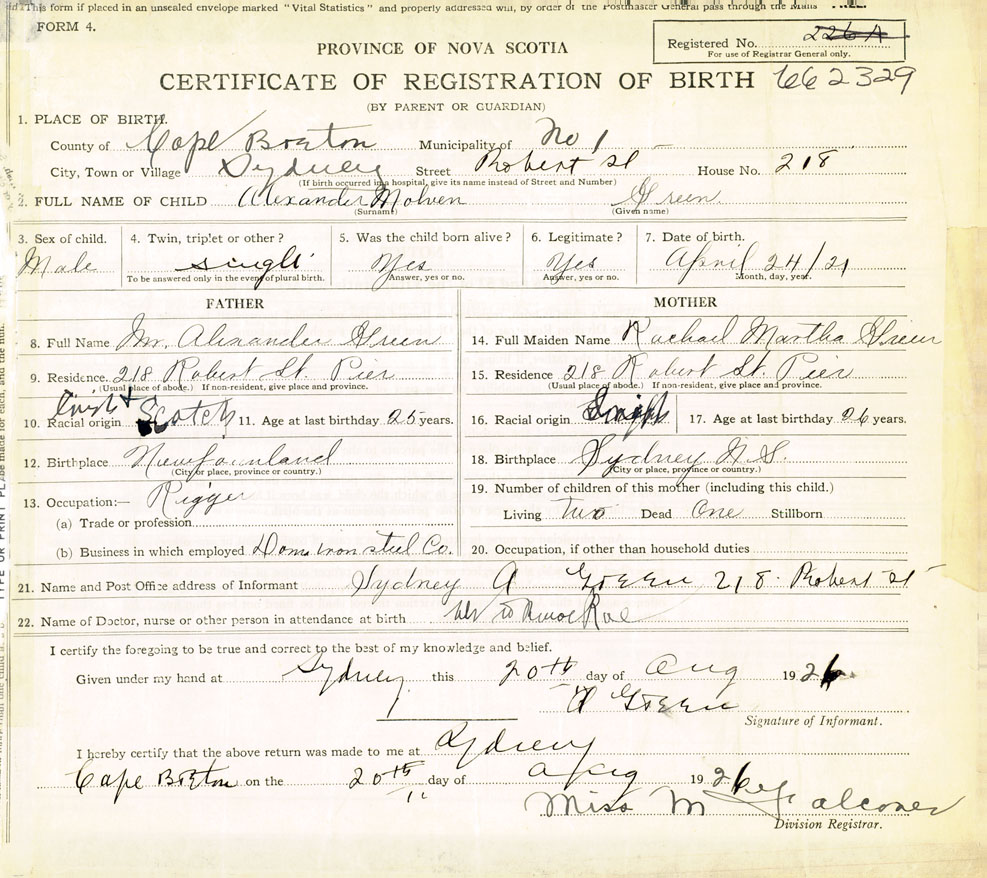 This form if placed in an unsealed envelope marked "Vital Statistics" and properly addressed will, by order of the Postmaster General pass through the Mails
FORM 4.
PROVINCE OF NOVA SCOTIA
Registered No. 226 A
For use of Registrar General only.
CERTIFICATE OF REGISTRATION OF BIRTH 662329
(BY PARENT OR GUARDIAN)
1. PLACE OF BIRTH.
County of Cape Breton Municipality of No 1
City, Town or Village Sydney Street Robert St House No. 218
(If birth occurred in a hospital, give its name instead of Street and Number)
2. FULL NAME OF CHILD Alexander Green
(Surname) (Given name)
3. Sex of child. 4. Twin, triplet or other? 5. Was the child born alive? 6. Legitimate? 7. Date of birth.
Male single Yes Yes April 24/21
To be answered only in the event of plural birth. Answer, yes or no. Answer, yes or no. Month, day, year.
FATHER MOTHER
8. Full Name Alexander Green 14. Full Maiden Name Rachael Martha Green
9. Residence. 218 Robert St. Pier 15. Residence 218 Robert St. Pier
(Usual place of abode.) If non-resident, give place and province. (Usual place of abode.) If non-resident, give place and province.
10. Racial origin Irish + Scotch 11. Age at last birthday 25 years. 16. Racial origin 17. Age at last birthday 26 years.
12. Birthplace Newfounland 18. Birthplace Sydney N.S.
(City or place, province or country.) (City or place, province or country.)
13. Occupation:— Rigger 19. Number of children of this mother (including this child.)
(a) Trade or profession Living two Dead One Stillborn
(b) Business in which employed Dom. iron steel Co. 20. Occupation, if other than household duties
21. Name and Post Office address of Informant Sydney A Green 218 Robert St
22. Name of Doctor, nurse or other person in attendance at birth
I certify the foregoing to be true and correct to the best of my knowledge and belief.
Given under my hand at Sydney this 20th day of Aug 1926
A Green
Signature of Informant.
I hereby certify that the above return was made to me at Sydney
Cape Breton on the 20th day of Aug 1926
Miss M Falconer
Division Registrar.